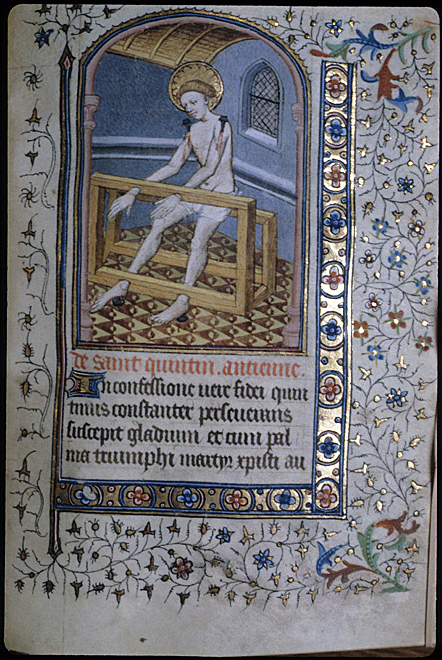 de saint quintin. antienne.
In confessione vere fidei quin
tinus constanter perseverans
suscepit gladium et cum pal
ma triumphi martyr xpisti au